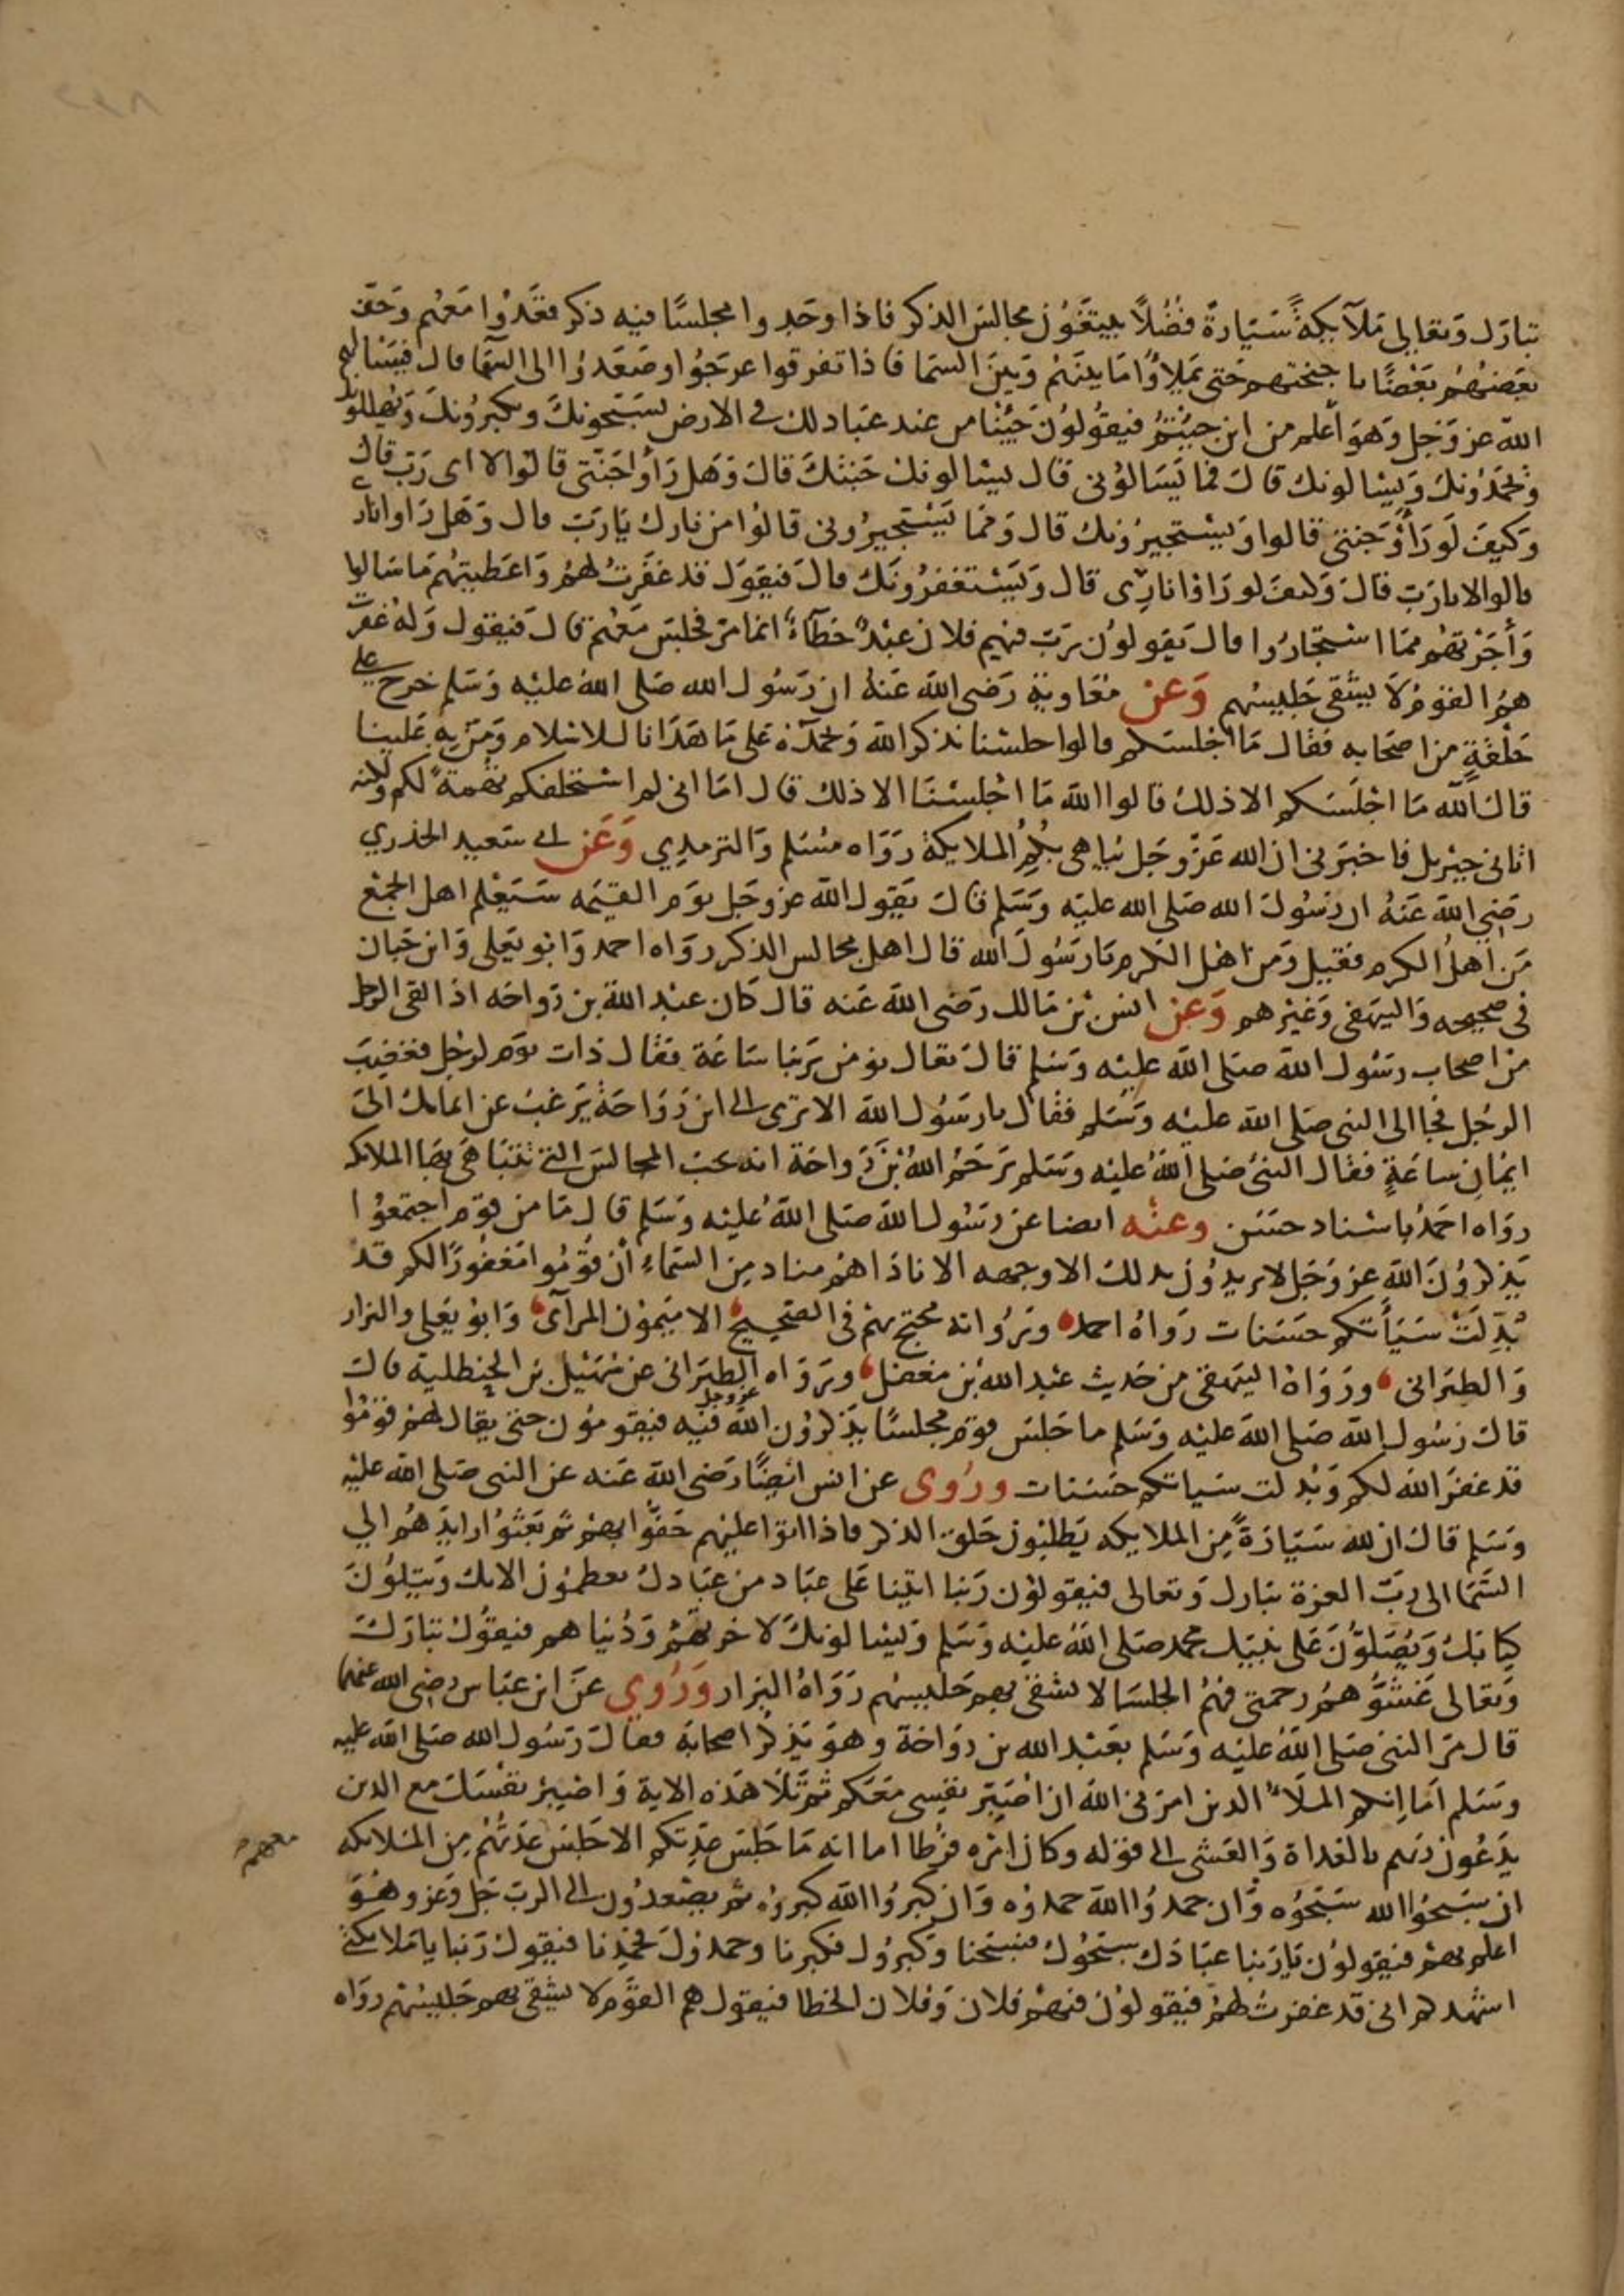 تبارك وتعالى ملآيكةً سيارةً فضلاً يبتغون مجالس الذكر فاذا وجدوا مجلسًا فيه ذكر قعدوا معهم وحف
بعضهم بعضًا باجنحتهم حتى يملاوا ما بينهم وبين السما فاذا تفرقوا عرجوا وصعدوا الى السما قال فيسالهم
الله عز وجل وهو أعلم من اين جيتم فيقولون جينا من عند عباد لك في الارض يسبحونك ويكبرونك ويهللونك
ويحمدونك ويسالونك قال فما يسالوني قال يسالونك جنتك قال وهل رأوا جنتي قالوا لا اى رب قال
وكيف لو رأوا جنتي قالوا ويستجيرونك قال ومما يستجيروني قالوا من نارك يارب قال وهل راوا ناري
قالوا لا يارب قال وكيف لو راوا ناري قال ويستغفرونك قال فيقول قد غفرت لهم واعطيتهم ما سالوا
وأجرتهم مما استجاروا قال يقولون رب فيهم فلان عبدٌ خطآءٌ انما مر فجلس معهم قال فيقول وله غفرت
هم القوم لا يشقى جليسهم وعن معاوية رضى الله عنه ان رسول الله صلى الله عليه وسلم خرج على
حلقةٍ من اصحابه فقال ما اجلسكم قالوا جلسنا نذكر الله ونحمده على ما هدانا للاسلام ومن به علينا
قال آلله ما اجلسكم الا ذلك قالوا الله ما اجلسنا الا ذلك قال اما انى لم استحلفكم تهمةً لكم ولكنه
اتانى جبريل فاخبرنى ان الله عز وجل يباهى بكم الملايكة رواه مسلم والترمدي وعن ابى سعيد الخدري
رضى الله عنه ان رسول الله صلى الله عليه وسلم قال يقول الله عز وجل يوم القيمه سيعلم اهل الجمع
من اهل الكرم فقيل ومن اهل الكرم يا رسول الله قال اهل مجالس الذكر رواه احمد وابو يعلى وابن حبان
فى صحيحه والبيهقى وغيرهم وعن انس بن مالك رضى الله عنه قال كان عبد الله بن رواحه اذا لقى الرجل
من اصحاب رسول الله صلى الله عليه وسلم قال تعال نومن بربنا ساعة فقال ذات يوم لرجل فغضب
الرجل فجا الى النبى صلى الله عليه وسلم فقال يا رسول الله الا ترى الى ابن رواحة يرغب عن ايمانك الى
ايمان ساعةٍ فقال النبى صلى الله عليه وسلم يرحم الله بن رواحة انه يحب المجالس التي تتباهى بها الملايكه
رواه احمد باسناد حسن وعنه ايضا عن رسول الله صلى الله عليه وسلم قال ما من قوم اجتمعوا
يذكرون الله عز وجل لا يريدون بدلك الا وجهه الا ناداهم مناد من السماء أن قوموا مغفورًا لكم قد
بدلت سيأتكم حسنات رواه احمد ورواته محتج بهم فى الصحيح الا ميمون المرآى وابو يعلى والبزار
والطبرانى ورواه البيهقى من حديث عبد الله بن مغفل ورواه الطبرانى عن سهيل بن الحنظلية قال
قال رسول الله صلى الله عليه وسلم ما جلس قوم مجلسًا يذكرون الله عز وجل فيه فيقومون حتى يقال لهم قوموا
قد غفر الله لكم وبدلت سياتكم حسنات وروى عن انس ايضًا رضى الله عنه عن النبى صلى الله عليه
وسلم قال ان لله سيارةً من الملايكه يطلبون حلق الذكر فاذا اتوا عليهم حفوا بهم ثم بعثوا رايدهم الي
السما الى رب العزة تبارك وتعالى فيقولون ربنا اتينا على عباد من عبادك يعظمون الايك ويتلون
كتابك ويصلون على نبيك محمد صلى الله عليه وسلم ويسالونك لاخرتهم ودنياهم فيقول تبارك
وتعالى غشوهم رحمتى فهم الجلسا لا يشقى بهم جليسهم رواه البزار وروي عن ابن عباس رضى الله عنهما
قال مر النبى صلى الله عليه وسلم بعبد الله بن رواحة وهو يذكر اصحابه فقال رسول الله صلى الله عليه
وسلم اما انكم الملأ الدين امرنى الله ان اصبر نفسى معكم ثم تلا هذه الاية واصبر نفسك مع الدين
يدعون ربهم بالغداة والعشى الى قوله وكان امره فرطا اما انه ما جلس عدتكم الا جلس عدتهم من الملايكه
معهم
ان سبحوا الله سبحوه وان حمدوا الله حمدوه وان كبروا الله كبروه ثم يصعدون الى الرب جل وعز وهو
اعلم بهم فيقولون يا ربنا عبادك سبحوك فسبحنا وكبروك فكبرنا وحمدوك فحمدنا فيقول ربنا يا ملايكتى
اشهدكم انى قد غفرت لهم فيقولون فيهم فلان وفلان الخطا فيقول هم القوم لا يشقى بهم جليسهم رواه